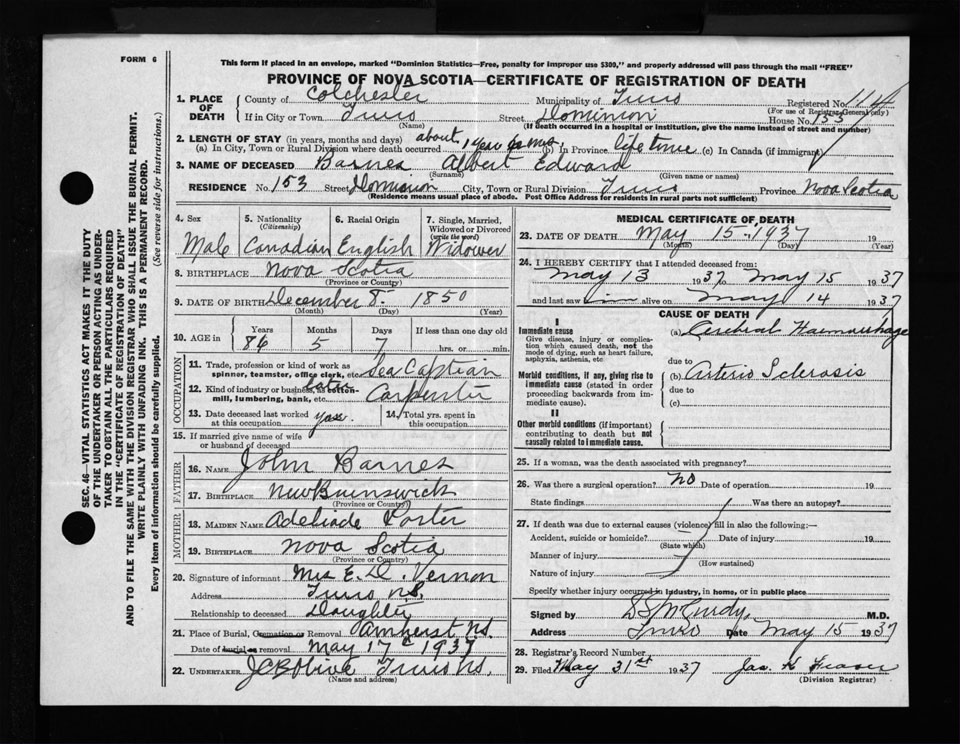 FORM 6
This form if placed in an envelope, marked "Dominion Statistics—Free, penalty for improper use $300," and properly addressed will pass through the mail "FREE"
PROVINCE OF NOVA SCOTIA—CERTIFICATE OF REGISTRATION OF DEATH
1. PLACE OF DEATH County of Colchester Municipality of Truro Registered No. 114
(For use of Registrar General only)
If in City or Town Truro Street Dominion House No. 153
(Name) (If death occurred in a hospital or institution, give the name instead of street and number)
2. LENGTH OF STAY (in years, months and days) about
(a) In City, Town or Rural Division where death occurred 1 year mos. (b) In Province life time (c) In Canada (if immigrant)
3. NAME OF DECEASED Barnes Albert Edward
(Surname) (Given name or names)
RESIDENCE No. 153 Street Dominion City, Town or Rural Division Truro Province Nova Scotia
(Residence means usual place of abode. Post Office Address for residents in rural parts not sufficient)
4. Sex 5. Nationality (Citizenship) 6. Racial Origin 7. Single, Married, Widowed or Divorced (write the word)
Male Canadian English Widower
8. BIRTHPLACE Nova Scotia
(Province or Country)
9. DATE OF BIRTH December 8 1850
(Month) (Day) (Year)
10. AGE in Years Months Days If less than one day old
86 5 7 hrs. or min.
OCCUPATION
11. Trade, profession or kind of work as spinner, teamster, office clerk, etc. Sea Captian
12. Kind of industry or business, as cotton-mill, lumbering, bank, etc. later Carpenter
13. Date deceased last worked at this occupation 14. Total yrs. spent in this occupation
15. If married give name of wife or husband of deceased
FATHER
16. NAME John Barnes
17. BIRTHPLACE New Brunswick
(Province or Country)
MOTHER
18. MAIDEN NAME Adeliade Porter
19. BIRTHPLACE Nova Scotia
(Province or Country)
20. Signature of informant Mrs E. D. Vernon
Address Truro N.S.
Relationship to deceased Daughter
21. Place of Burial, Cremation or Removal Amherst N.S.
Date of burial or Removal May 17 1937
22. UNDERTAKER Truro N.S.
(Name and address)
MEDICAL CERTIFICATE OF DEATH
23. DATE OF DEATH May 15 - 1937 19
(Month) (Day) (Year)
24. I HEREBY CERTIFY that I attended deceased from:
May 13 1937 to May 15 1937
and last saw him alive on May 14 1937
CAUSE OF DEATH
I
Immediate cause (a) Cerebral Haemorrhage
Give disease, injury or complication which caused death, not the mode of dying, such as heart failure, asphyxia, asthenia, etc
due to
Morbid conditions, if any, giving rise to immediate cause (stated in order proceeding backwards from immediate cause). (b) Arterio Sclerosis
due to
(c)
II
Other morbid conditions (if important) contributing to death but not causally related to immediate cause.
25. If a woman, was the death associated with pregnancy?
26. Was there a surgical operation? no Date of operation 19
State findings Was there an autopsy?
27. If death was due to external causes (violence) fill in also the following:—
Accident, suicide or homicide? Date of injury 19
(State which)
Manner of injury
(How sustained)
Nature of injury
Specify whether injury occurred in industry, in home, or in public place
Signed by McCurdy, M.D.
Address Truro Date May 15 1937
28. Registrar's Record Number
29. Filed May 31st 1937 Jas. Fraser
(Division Registrar)
SEC. 46—VITAL STATISTICS ACT MAKES IT THE DUTY
OF THE UNDERTAKER OR PERSON ACTING AS UNDER-
TAKER TO OBTAIN ALL THE PARTICULARS REQUIRED
IN THE "CERTIFICATE OF REGISTRATION OF DEATH"
AND TO FILE THE SAME WITH THE DIVISION REGISTRAR WHO SHALL ISSUE THE BURIAL PERMIT.
WRITE PLAINLY WITH UNFADING INK. THIS IS A PERMANENT RECORD.
Every item of information should be carefully supplied. (See reverse side for instructions.)